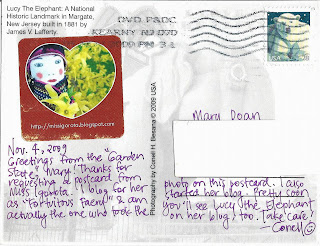 Lucy The Elephant: A National
Historic Landmark in Margate,
New Jersey built in 1881 by
James V. Lafferty.
DVD P&DC
KEARNY NJ
USA
http://missigorota.blogspot.com
Photography by Conell H. Besana © 2009 USA
Mary Doan
Nov. 4, 2009
Greetings from the "Garden
State", Mary! Thanks for
requesting a postcard from
Miss Igorota. I blog for her
as "Fortuitous Faery" & am
actually the one who took the
photo on this postcard. I also
started her blog. Pretty soon
you'll see Lucy the Elephant
on her blog, too. Take care!
- Conell